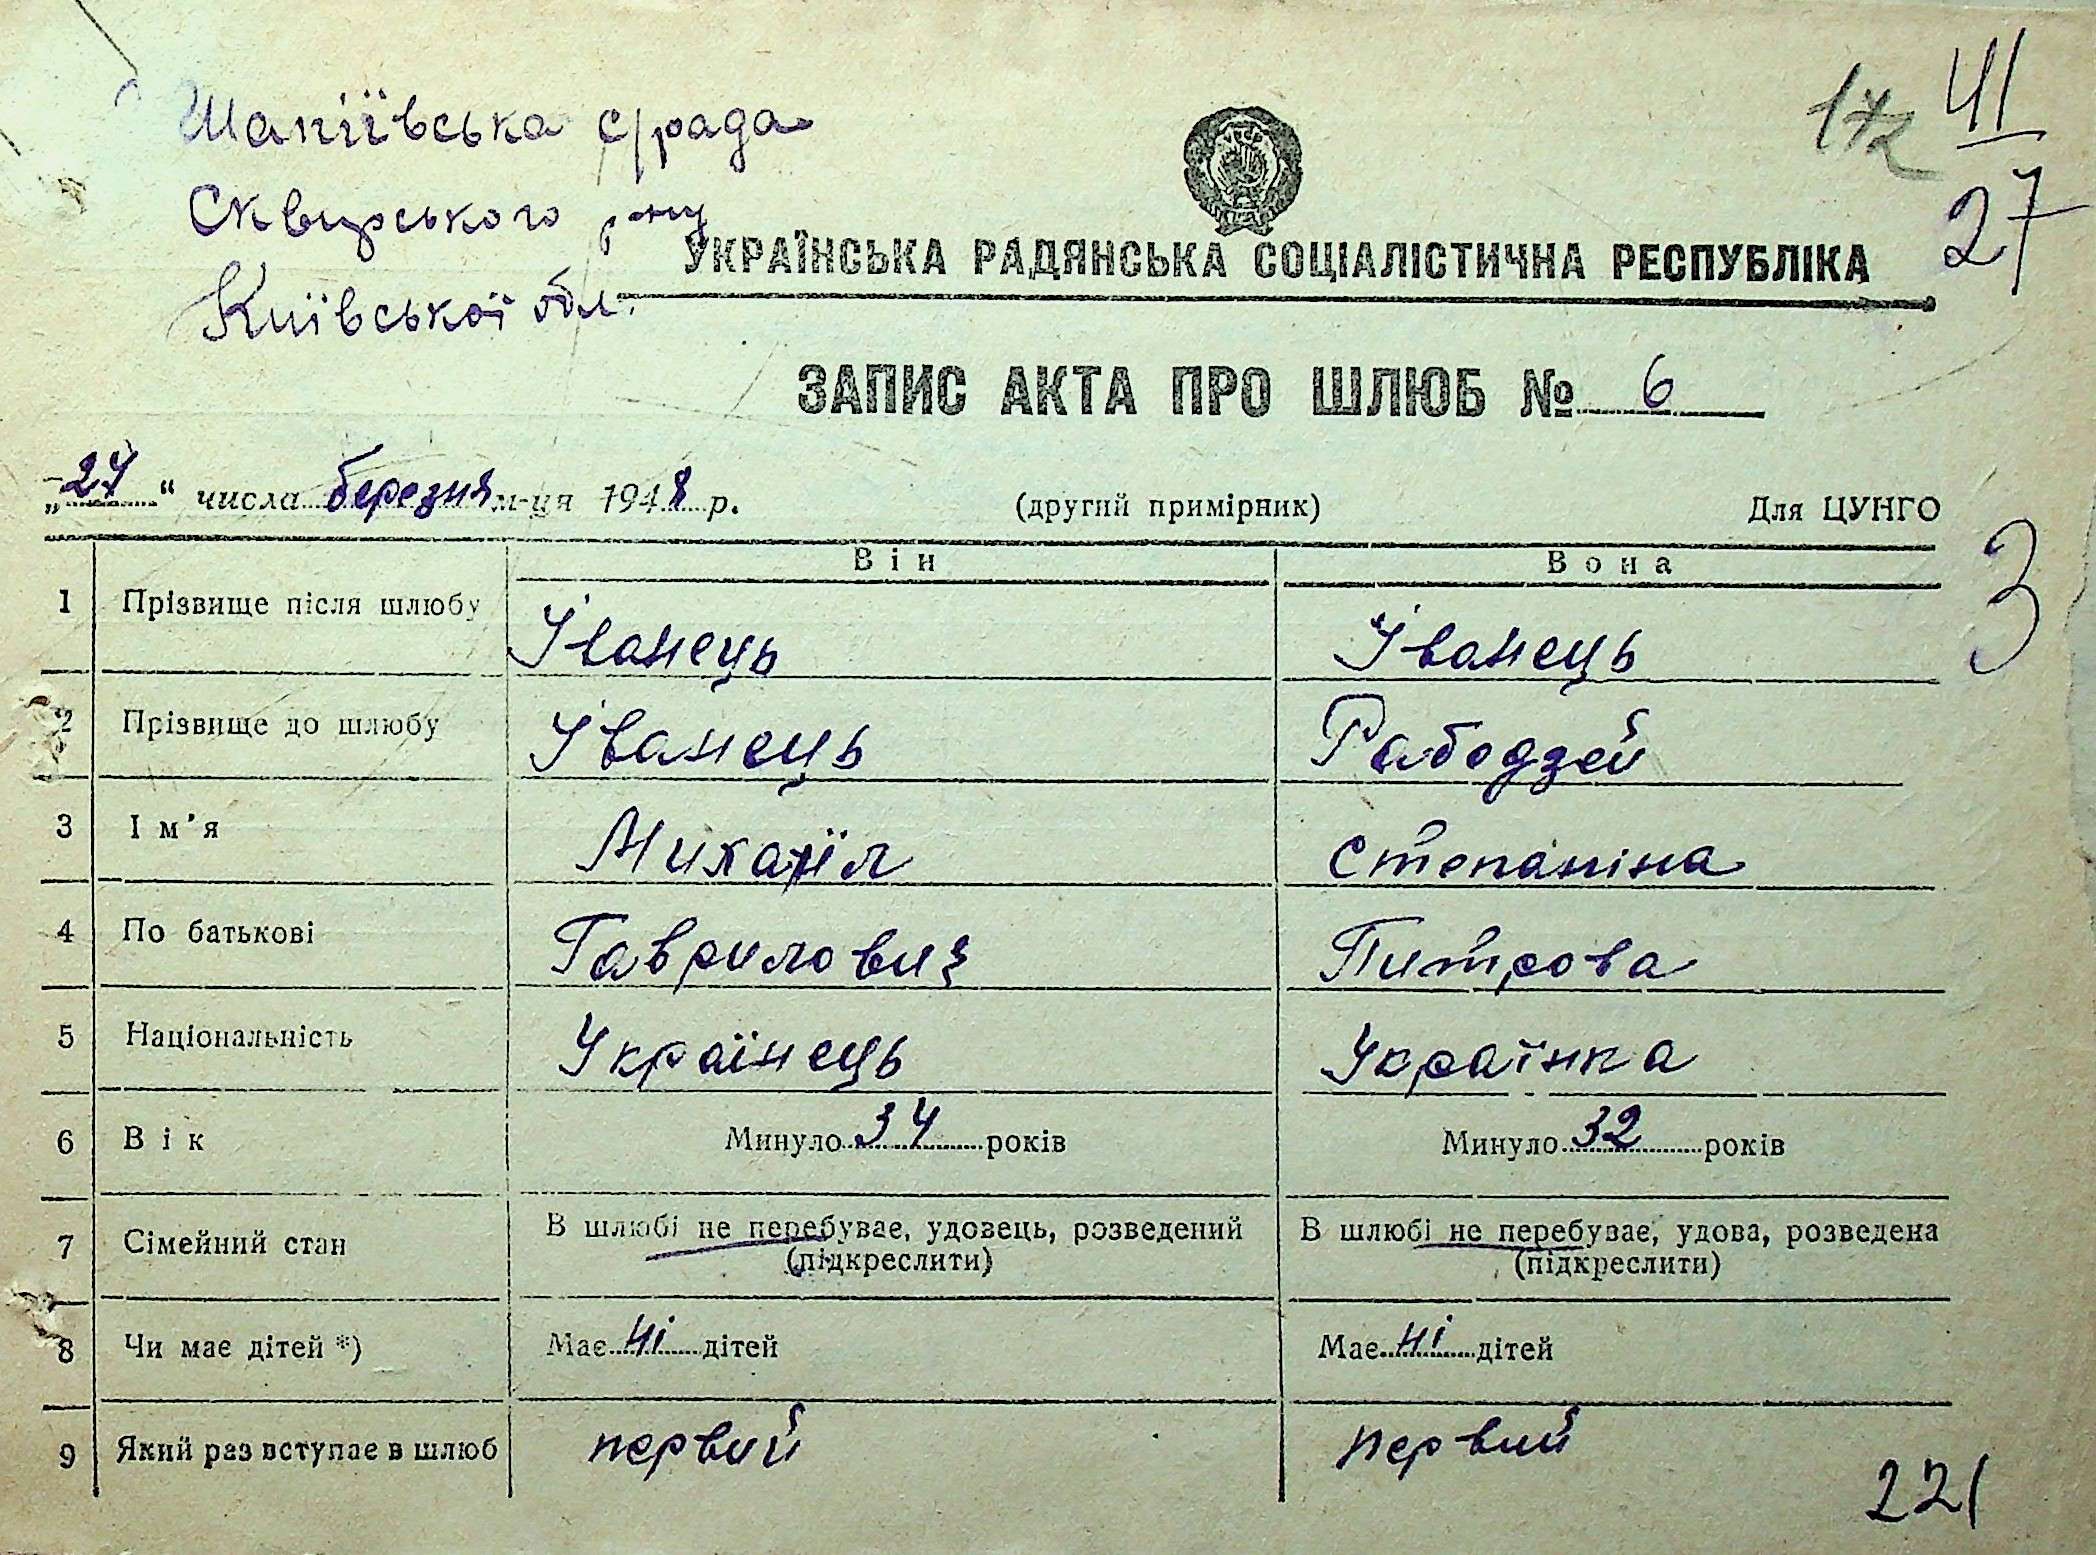 Шапіївська с/рада
Сквирського р-ну
Київської обл.
41
27
УКРАЇНСЬКА РАДЯНСЬКА СОЦІАЛІСТИЧНА РЕСПУБЛІКА
ЗАПИС АКТА ПРО ШЛЮБ № 6
„27“ числа березня м-ця 1948 р. (другий примірник) Для ЦУНГО
3
Він Вона
1 Прізвище після шлюбу Іванець Іванець
2 Прізвище до шлюбу Іванець Рабодзей
3 Ім’я Михаїл Степаніна
4 По батькові Гаврилович Питрова
5 Національність Українець Українка
6 Вік Минуло 34 років Минуло 32 років
7 Сімейний стан В шлюбі не перебуває, удовець, розведений В шлюбі не перебуває, удова, розведена
(підкреслити) (підкреслити)
8 Чи має дітей *) Має ні дітей Має ні дітей
9 Який раз вступає в шлюб первий первий
221